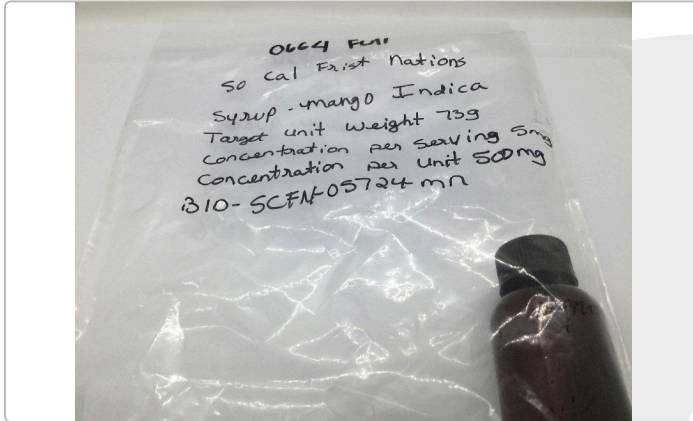 0664 Full
So Cal Frist Nations
Syrup - mango Indica
Target unit weight 73g
Concentration per serving 5mg
Concentration per unit 500mg
B10-SCFN-05724 mn